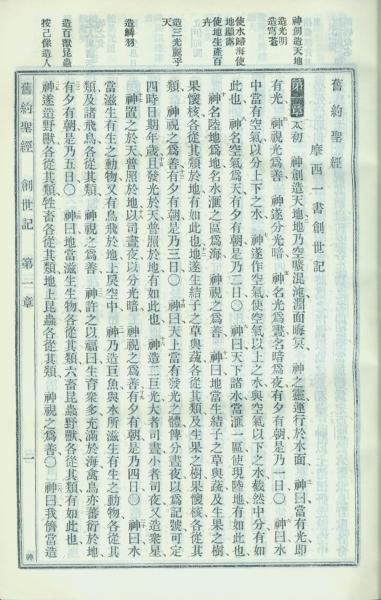 神創造天地
造光明
造穹蒼
使水歸海使
地顯露
使地生產百
卉
造三光麗乎
天
造鱗羽
造百獸昆蟲
按己像造人
舊約聖經
摩西一書創世記
第一章 太初 神創造天地地乃空曠混沌淵面晦冥 神之靈運行於水面 神曰當有光即
有光 神視光爲善 神遂分光暗 神名光爲晝名暗爲夜有夕有朝是乃一日〇 神曰水
中當有空氣以分上下之水 神遂作空氣使空氣以上之水與空氣以下之水截然中分有如
此也 神名空氣爲天有夕有朝是乃二日〇 神曰天下諸水當滙一區使現陸地有如此也
神名陸地爲地名水滙之區爲海 神視之爲善 神曰地當生結子之草與蔬及生果之樹
果懷核各從其類於地有如此也地遂生結子之草與蔬各從其類及生果之樹果懷核各從其
類 神視之爲善有夕有朝是乃三日〇 神曰天上當有發光之體傅分晝夜以爲記號可定
四時日期年歲且發光於天普照於地有如此也 神造二巨光大者司晝小者司夜又造衆星
神置之於天普照於地以司晝夜以分光暗 神視之爲善有夕有朝是乃四日〇 神曰水
當滋生有生之動物又有鳥飛於地上戾空中 神乃造巨魚與水所滋生有生之動物各從其
類及諸飛鳥各從其類 神視之爲善 神許之以福曰生育衆多充滿於海禽鳥亦蕃衍於地
有夕有朝是乃五日〇 神曰地當滋生生物各從其類六畜昆蟲野獸各從其類有如此也
神遂造野獸各從其類牲畜各從其類地上昆蟲各從其類 神視之爲善〇 神曰我儕當造
舊約聖經 創世記 第一章
一
神